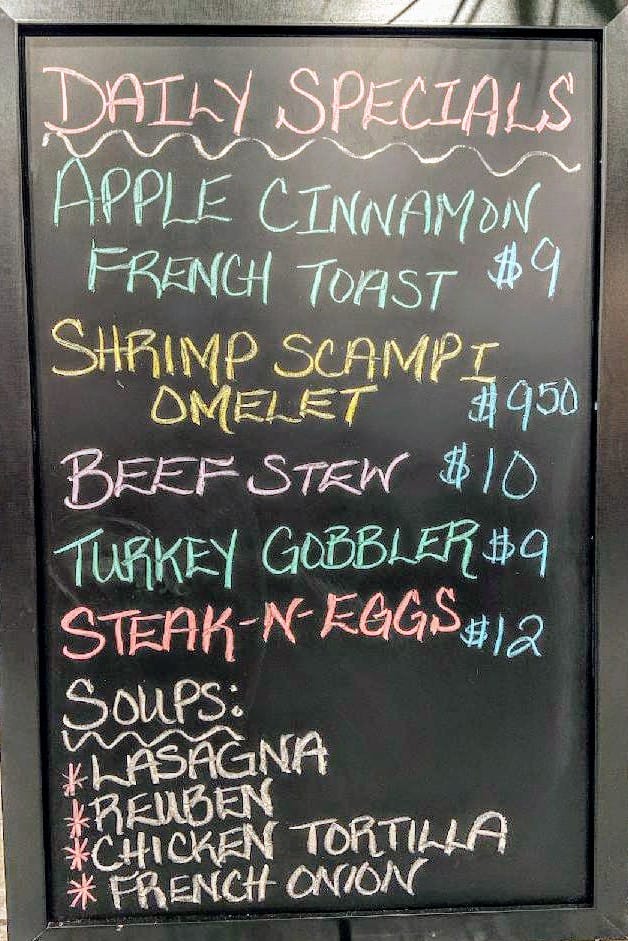 DAILY SPECIALS
APPLE CINNAMON
FRENCH TOAST $9
SHRIMP SCAMPI
OMELET $950
BEEF STEW $10
TURKEY GOBBLER $9
STEAK-N-EGGS $12
SOUPS:
*LASAGNA
*REUBEN
*CHICKEN TORTILLA
* FRENCH ONION